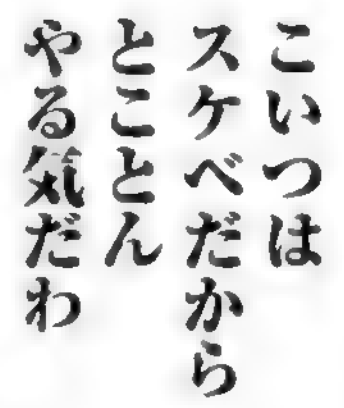 こいつは
スケベだから
とことん
やる気だわ